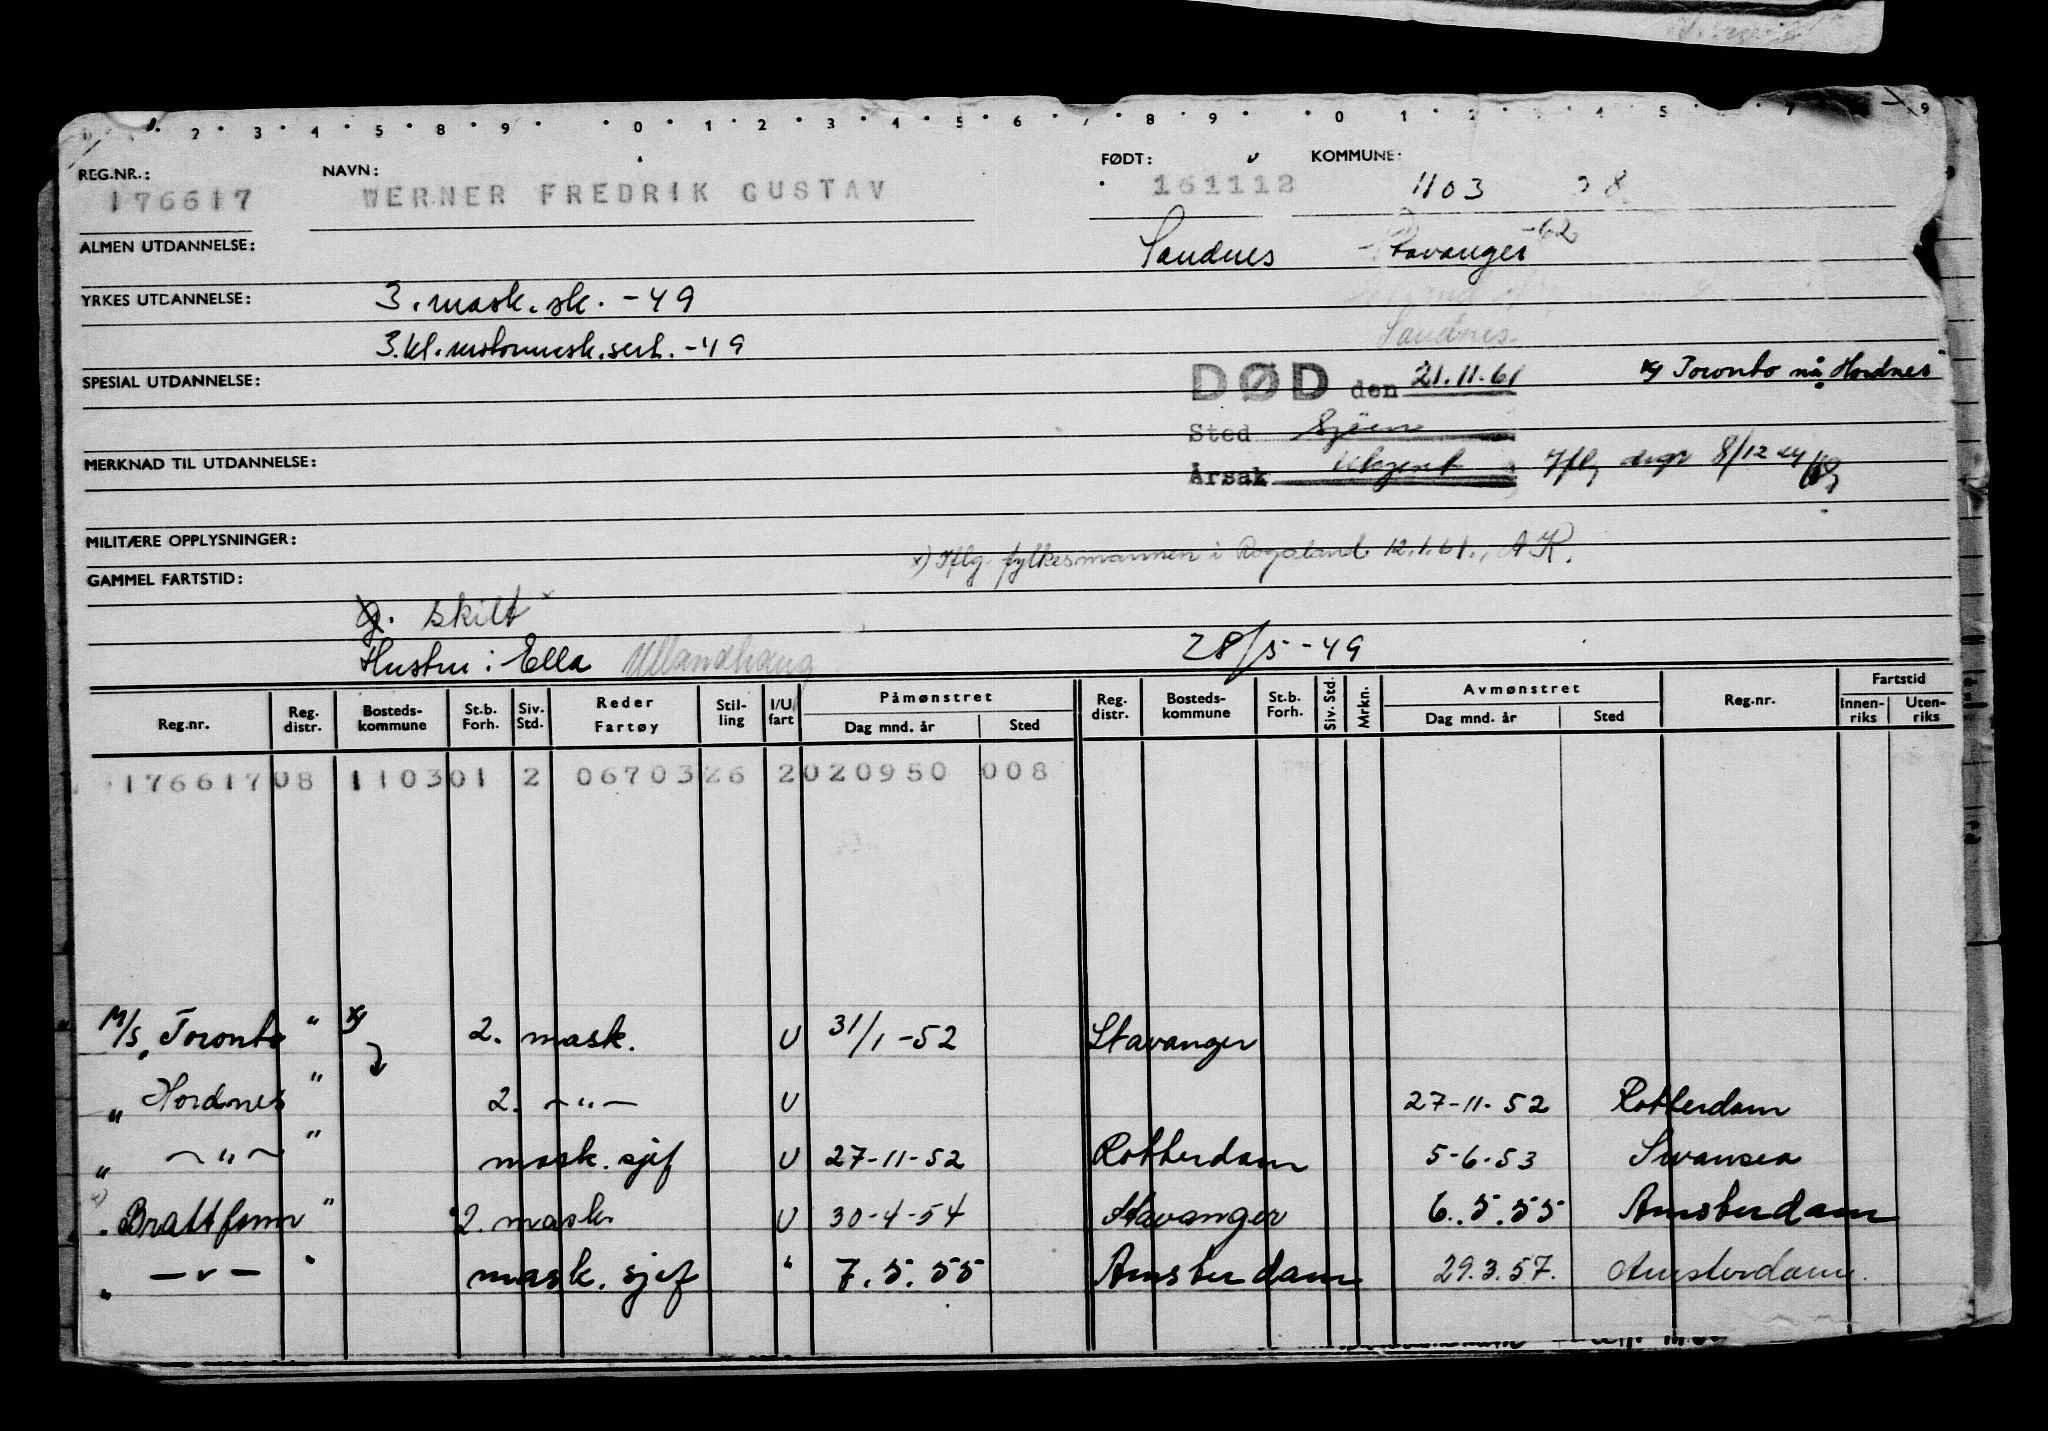 1 2 3 4 5 8 9 0 1 2 3 4 5 6 7 8 9 0 1 2 3 4 5 7 9
REG.NR.: NAVN: FØDT: KOMMUNE:
176617 WERNER FREDRIK GUSTAV 161112 1103
ALMEN UTDANNELSE: Sandnes Stavanger -62
YRKES UTDANNELSE: 3. mask. sk. -49
Sandnes
3.kl. motormask.sert. -49
SPESIAL UTDANNELSE: DØD den 21.11.61 x) Toronto nå Hordnes
Sted Sjøen
MERKNAD TIL UTDANNELSE: Årsak Iflg 8/12
MILITÆRE OPPLYSNINGER: x) Iflg. fylkesmannen i Rogaland 12.1.61., AK.
GAMMEL FARTSTID:
g. skilt x
Hustru: Ella Ullandhaug 28/5-49
Reg.nr. Reg. distr. Bosteds-kommune St.b. Forh. Siv. Std. Reder Fartøy Stil-ling I/U fart Påmønstret Dag mnd. år Sted Reg. distr. Bosteds-kommune St.b. Forh. Siv. Std. Mrkn. Avmønstret Dag mnd. år Sted Reg.nr. Fartstid Innen-riks Uten-riks
176617 08 1103 01 2 06703 26 2 020950 008
M/S "Toronto" x) 2. mask. U 31/1-52 Stavanger
" Hordnes " 2. -"- U 27-11-52 Rotterdam
" -"- " mask. sjef U 27-11-52 Rotterdam 5-6-53 Swansea
" Brattfonn " 2. mask. U 30-4-54 Stavanger 6.5.55 Amsterdam
" -"- " mask. sjef " 7.5.55 Amsterdam 29.3.57. Amsterdam.